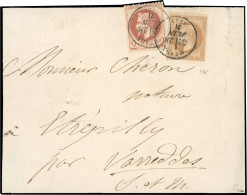 Monsieur Chéron
notaire
à Etrépilly
par Varreddes
S. et M.